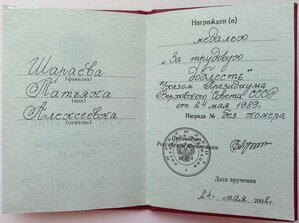 Шараева
(фамилия)
Татьяна
(имя)
Алексеевна
(отчество)
Награжден (а)
медалью
"За трудовую
доблесть"
Указом Президиума
Верховного Совета СССР
от 24 мая 1989.
Награда № без номера
Российской Федерации
Дата вручения
24 мая 2002 г.